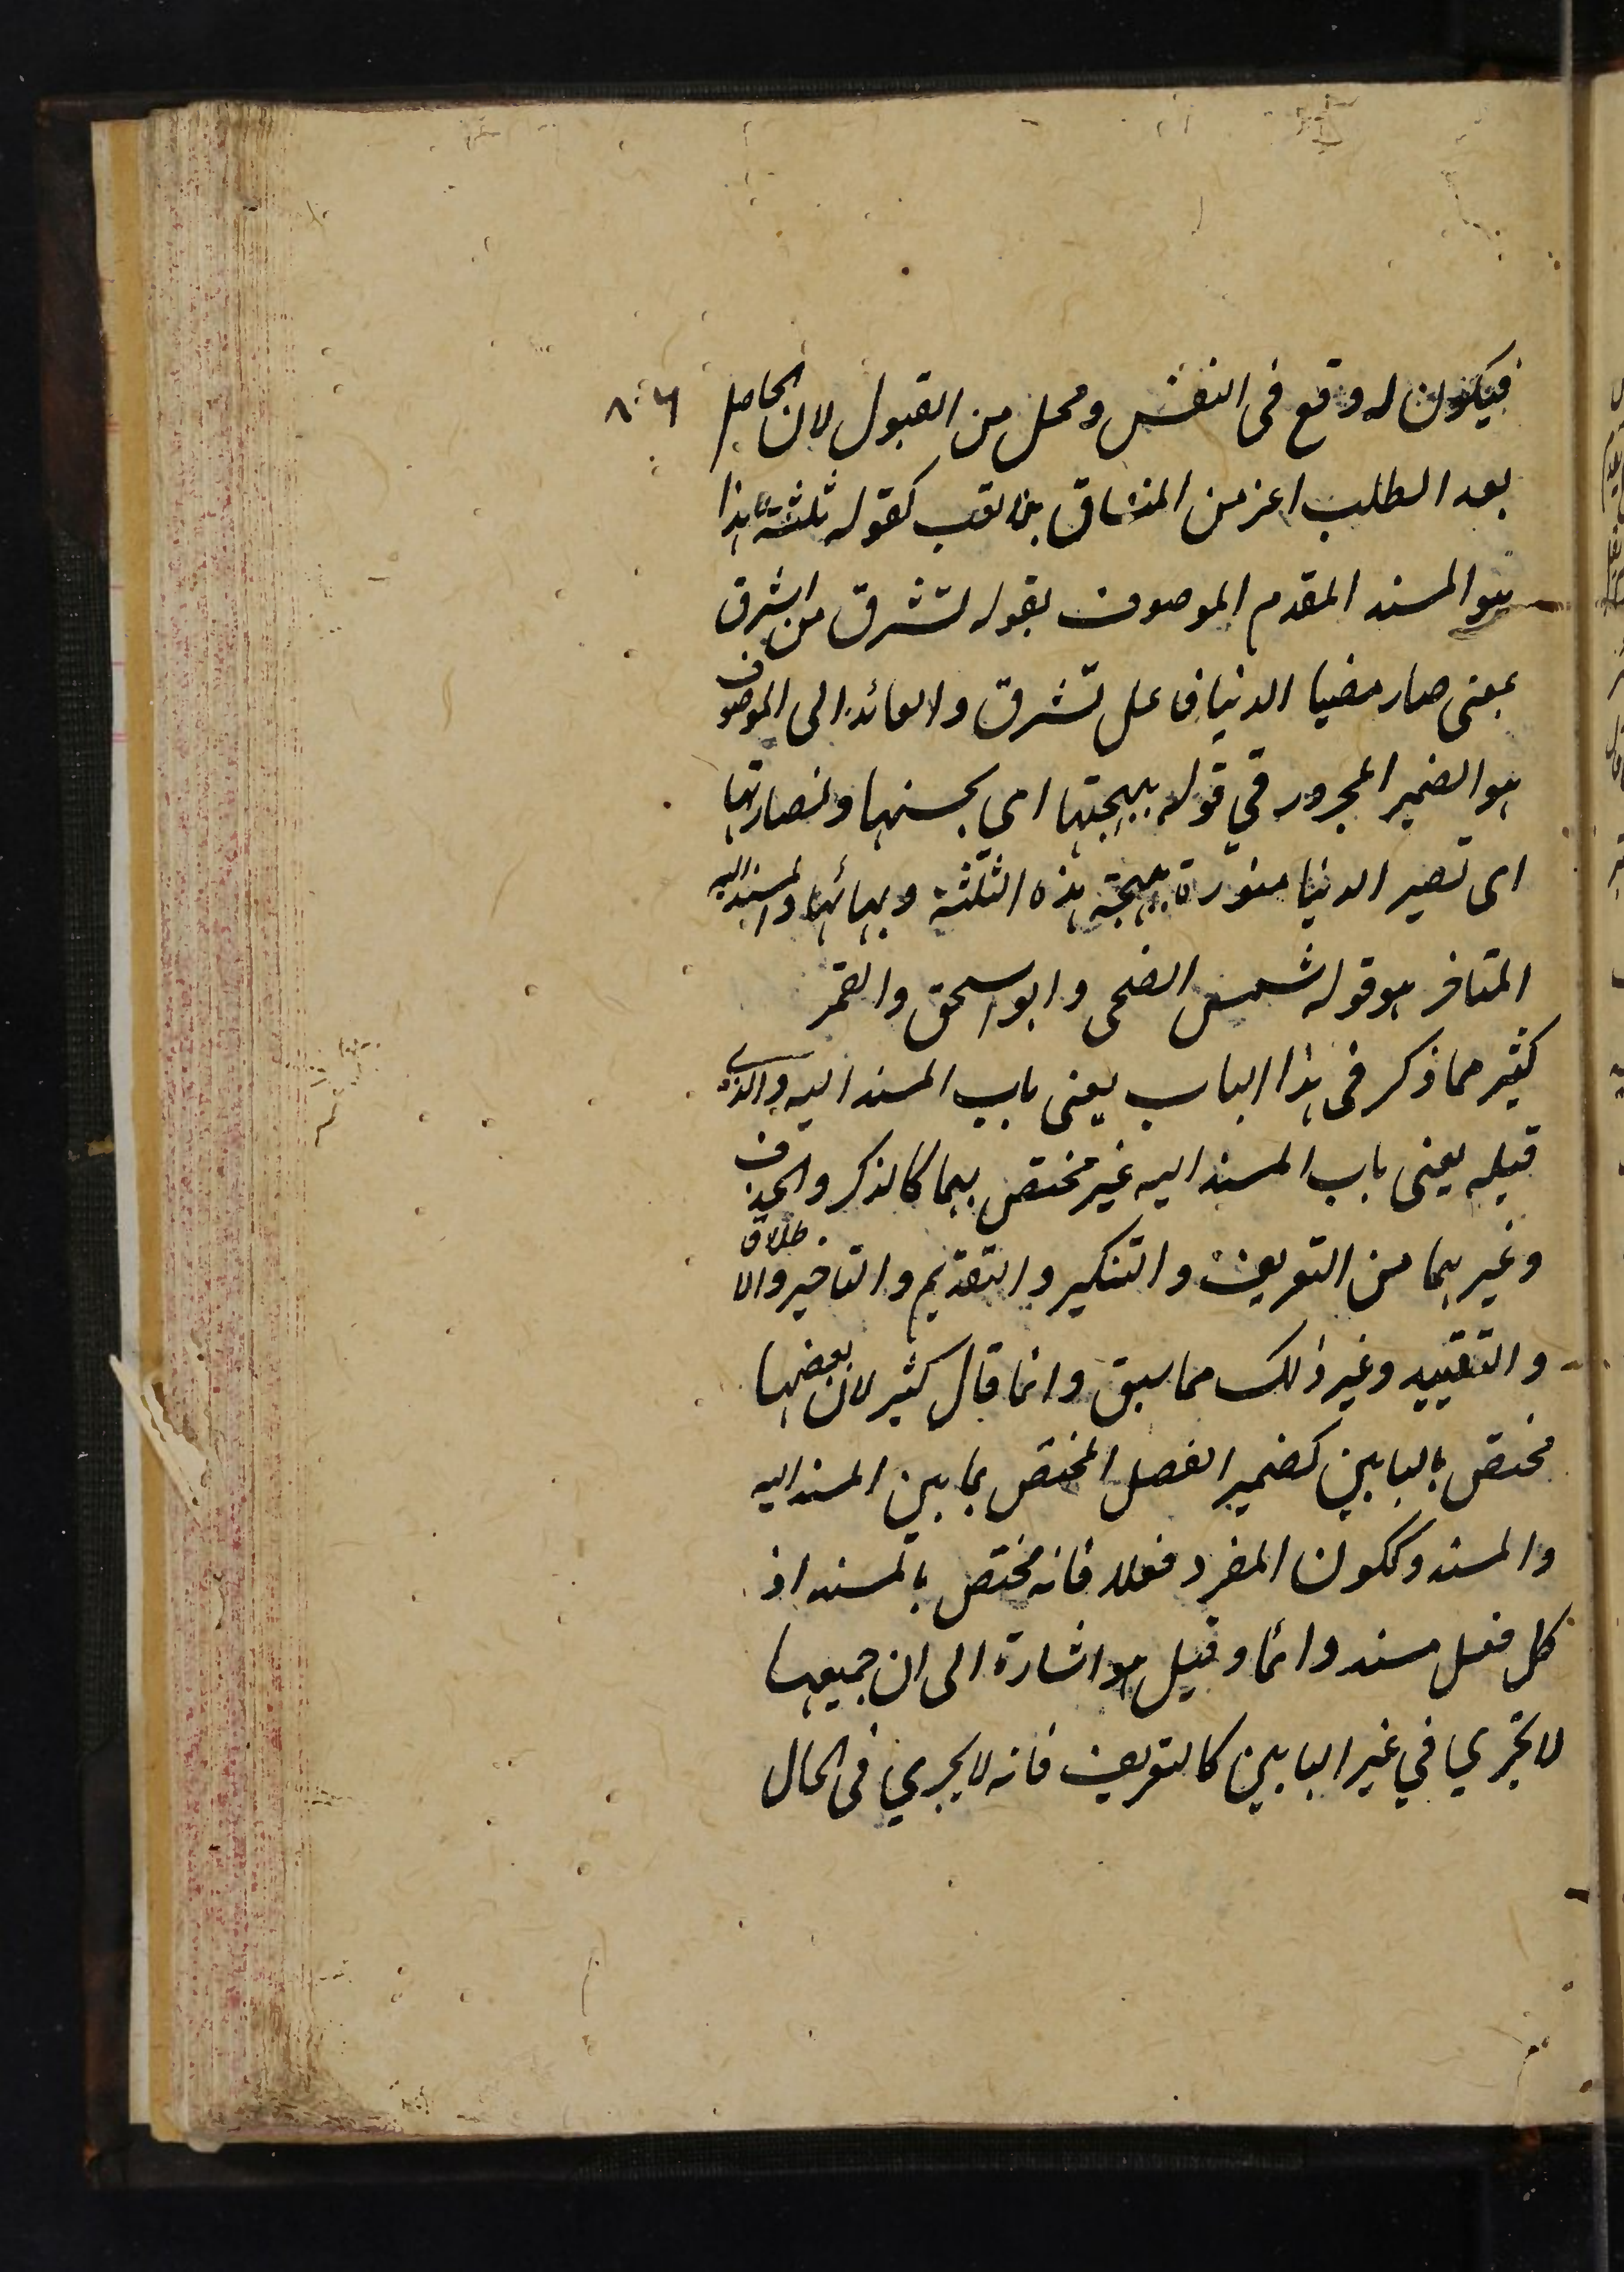 فيكون له وقع فى النفس ومحل من القبول لان الحاصل
بعد الطلب اعز من المنساق بلا تعب كقوله ثلثة هذا
هو المسند المقدم الموصوف بقوله تشرق من اشرق
بمعنى صار مضيا الدنيا فاعل تشرق والعائد الى الموصوف
هو الضمير المجرور في قوله ببهجتها اي بحسنها ونضارتها
اى تصير الدنيا منورة ببهجة هذه الثلثة وبهائها والمسند اليه
المتاخر هو قوله شمس الضحى وابو اسحق والقمر
كثير مما ذكر فى هذا الباب يعنى باب المسند اليه والذي
قبله يعنى باب المسند اليه غير مختص بهما كالذكر والحذف
وغيرهما من التعريف والتنكير والتقديم والتاخير والاطلاق
والتقييد وغير ذلك مما سبق وانما قال كثير لان بعضها
مختص بالبابين كضمير الفصل المختص بما بين المسند اليه
والمسند وككون المفرد فعلا فانه مختص بالمسند اذ
كل فعل مسند دائما وقيل هو اشارة الى ان جميعها
لا تجري في غير البابين كالتعريف فانه لا يجري فى الحال